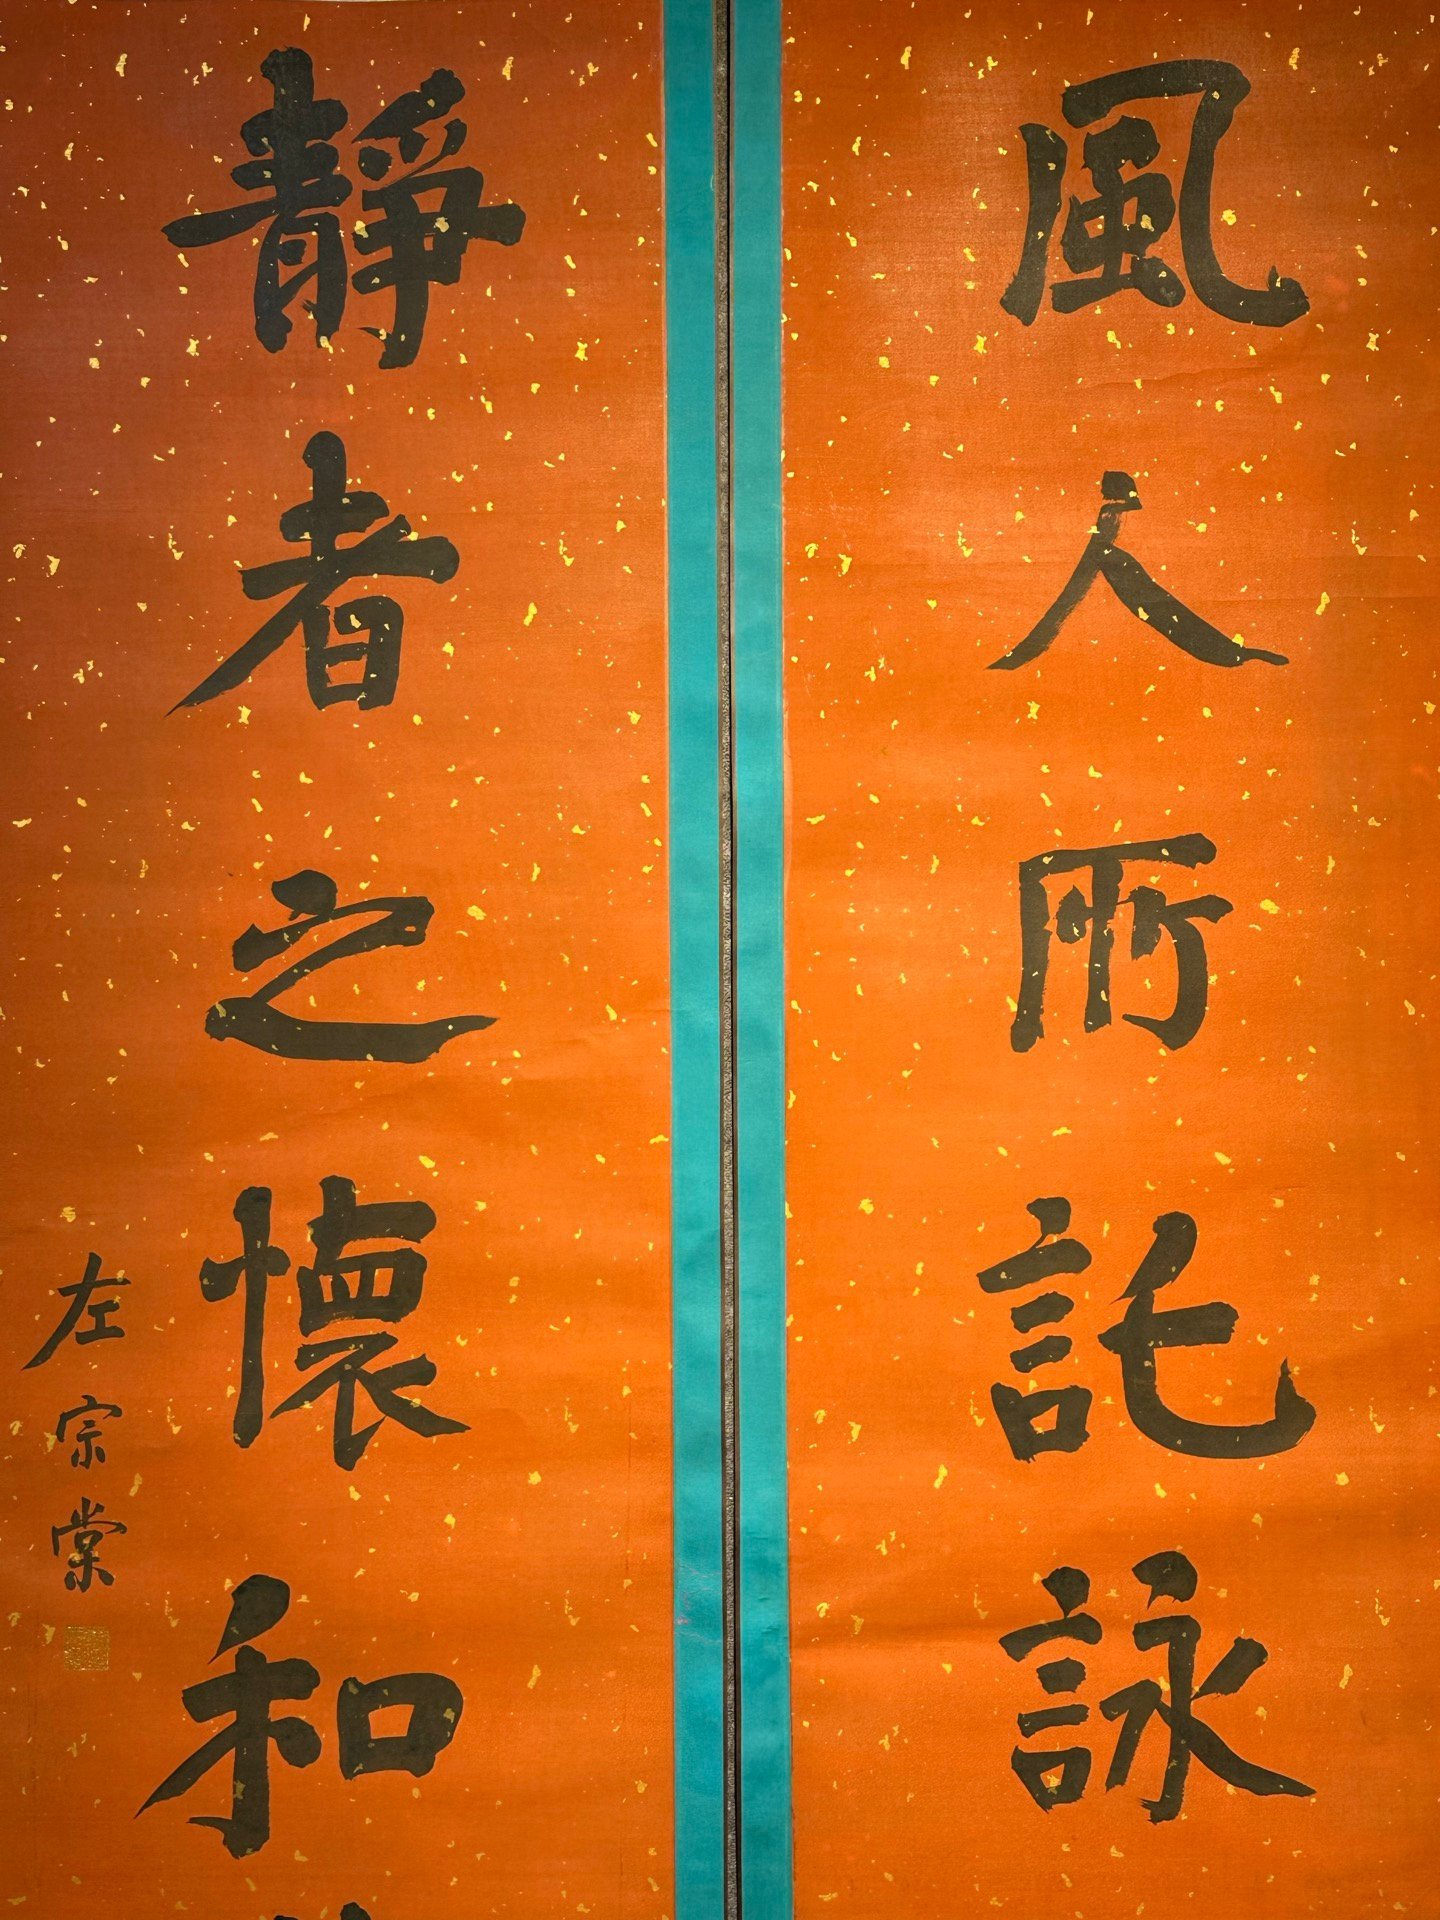 風人所託詠
靜者之懷和
左宗棠